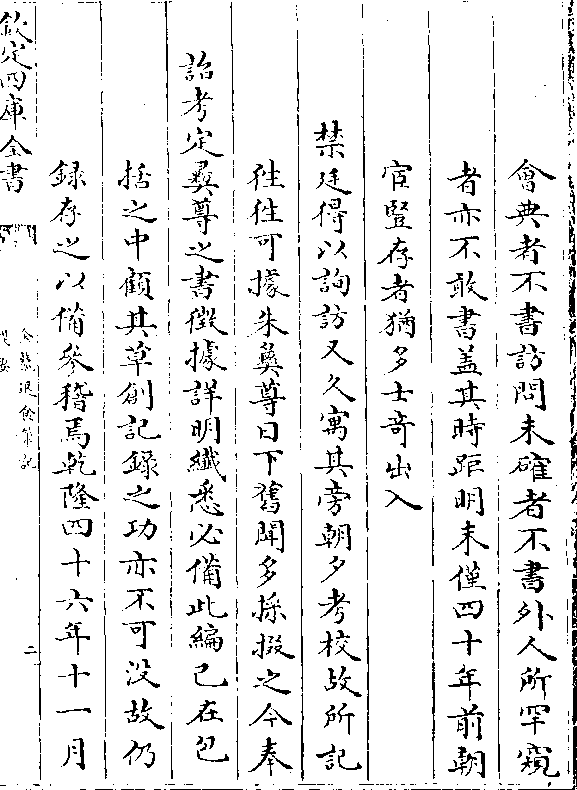 會典者不書訪問未確者不書外人所罕窺
者亦不敢書盖其時距明末僅四十年前朝
宦豎存者猶多士竒出入
禁廷得以詢訪又久寓其旁朝夕考校故所記
徃徃可據朱彞尊日下舊聞多採掇之今奉
詔考定彞尊之書徵據詳明纎悉必備此編已在包
括之中顧其草創記録之功亦不可没故仍
録存之以備參稽焉乾隆四十六年十一月
欽定四庫全書
金鰲退食筆記
提要
二